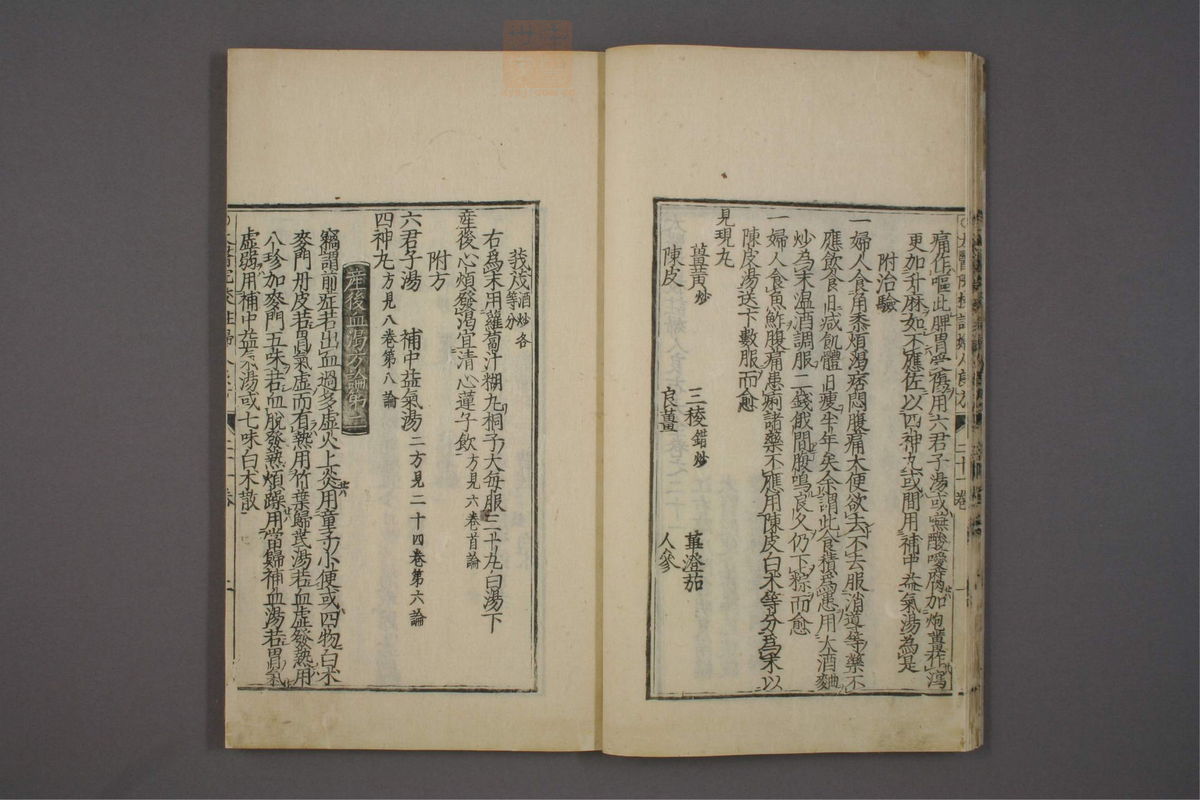 痛作嘔此脾胃受傷用六君子湯或嘸酸噯腐加炮薑作瀉
更加升麻如不應佐以四神丸或間用補中益氣湯為是
附治驗
一婦人食角黍煩渴痞悶腹痛大便欲去不去服消導等藥不
應飲食日减飢體日瘦半年矣余謂此食積爲患用大酒麯
炒爲末温酒調服二錢俄間腹鳴良久仍下粽而愈
一婦人食魚鮓腹痛患痢諸藥不應用陳皮白朮等分爲末以
陳皮湯送下數服而愈
見現丸
薑黃炒 三稜錯炒 蓽澄茄
陳皮 良薑 人參
莪茂酒炒各等分
右爲末用蘿蔔汁糊丸桐子大每服三十丸白湯下
産後心煩發渴宜清心蓮子飲方見六卷首論
附方
六君子湯 補中益氣湯二方見二十四卷第六論
四神丸方見八卷第八論
産後血渴方論第三
竊謂前症若出血過多虛火上炎用童子小便或四物白朮
麥門丹皮若胃氣虛而有熱用竹葉歸芪湯若血虛發熱用
八珍加麥門五味若血脫發熱煩躁用當歸補血湯若胃氣
虛弱用補中益氣湯或七味白朮散